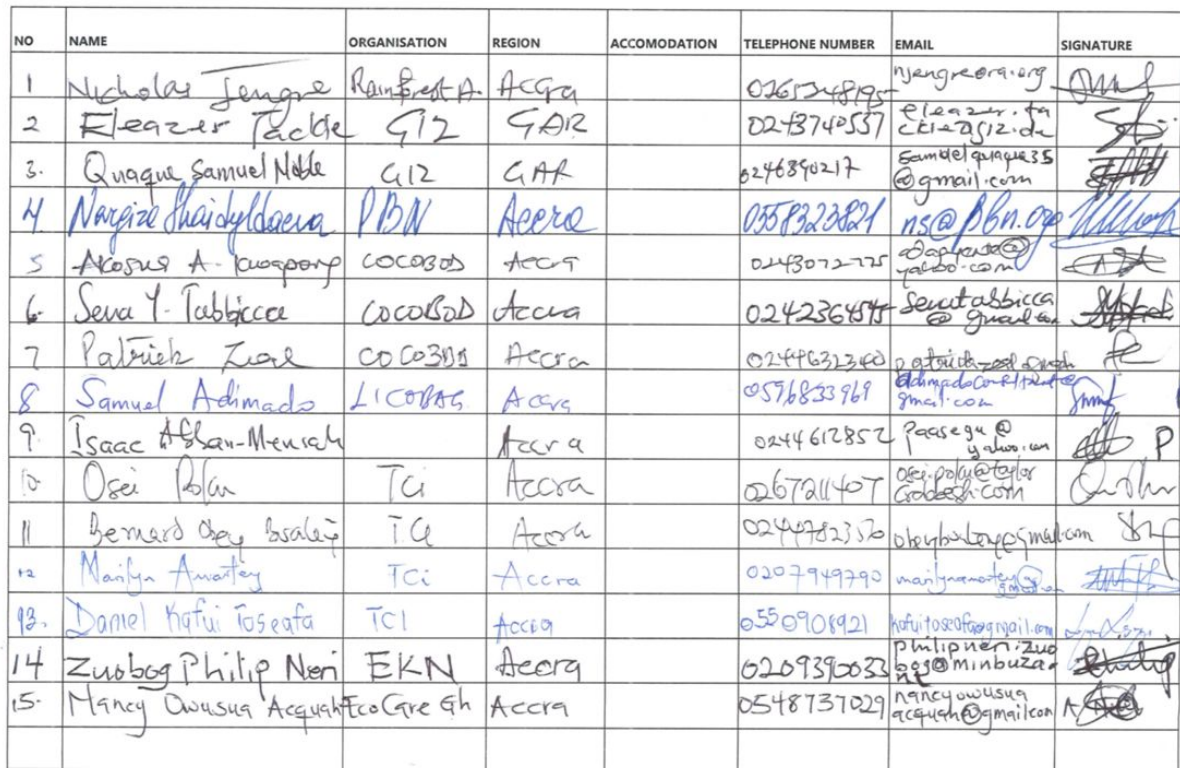 NO NAME ORGANISATION REGION ACCOMODATION TELEPHONE NUMBER EMAIL SIGNATURE
1 Nicholas Jengre Rainforest A. Accra njengre@ra.org
2 Eleazer Tackie GIZ GAR 0243740557 eleazer.ta
ckie@giz.de
3. Quaque Samuel Noble GIZ GAR 0246890217 samuelquaque35
@gmail.com
4 Nargiza PBN Accra 0558323821 ns@pbn.org
5 Akosua A. COCOBOD Accra 0243072775
yahoo.com
6. Sena Y. Tabbicca COCOBOD Accra senatabbicca
@ gmail.com
7 Patrick COCOBOD Accra 0244632340
8 Samuel Adimado LICOBAG Accra 0596833969
gmail.com
9. Isaac Accra 0244612852 paasegu @
yahoo.com P
10 Osei Poku TCi Accra 0267211407 osei.poku@taylor
crabbe
11 Bernard Obey TCi Accra
12 Marilyn Amartey TCi Accra 0207949790 marilynamartey@
13. Daniel Kafui Toseafa TCI Accra 0550908921 kafuitoseafa@gmail.com
14 Zuobog Philip Neri EKN Accra 0209390033 philipneri.zuo
bog@minbuza.
15. Nancy Owusua Acquah EcoCare Gh Accra 0548737029 nancyowusua
acquah@gmail.com